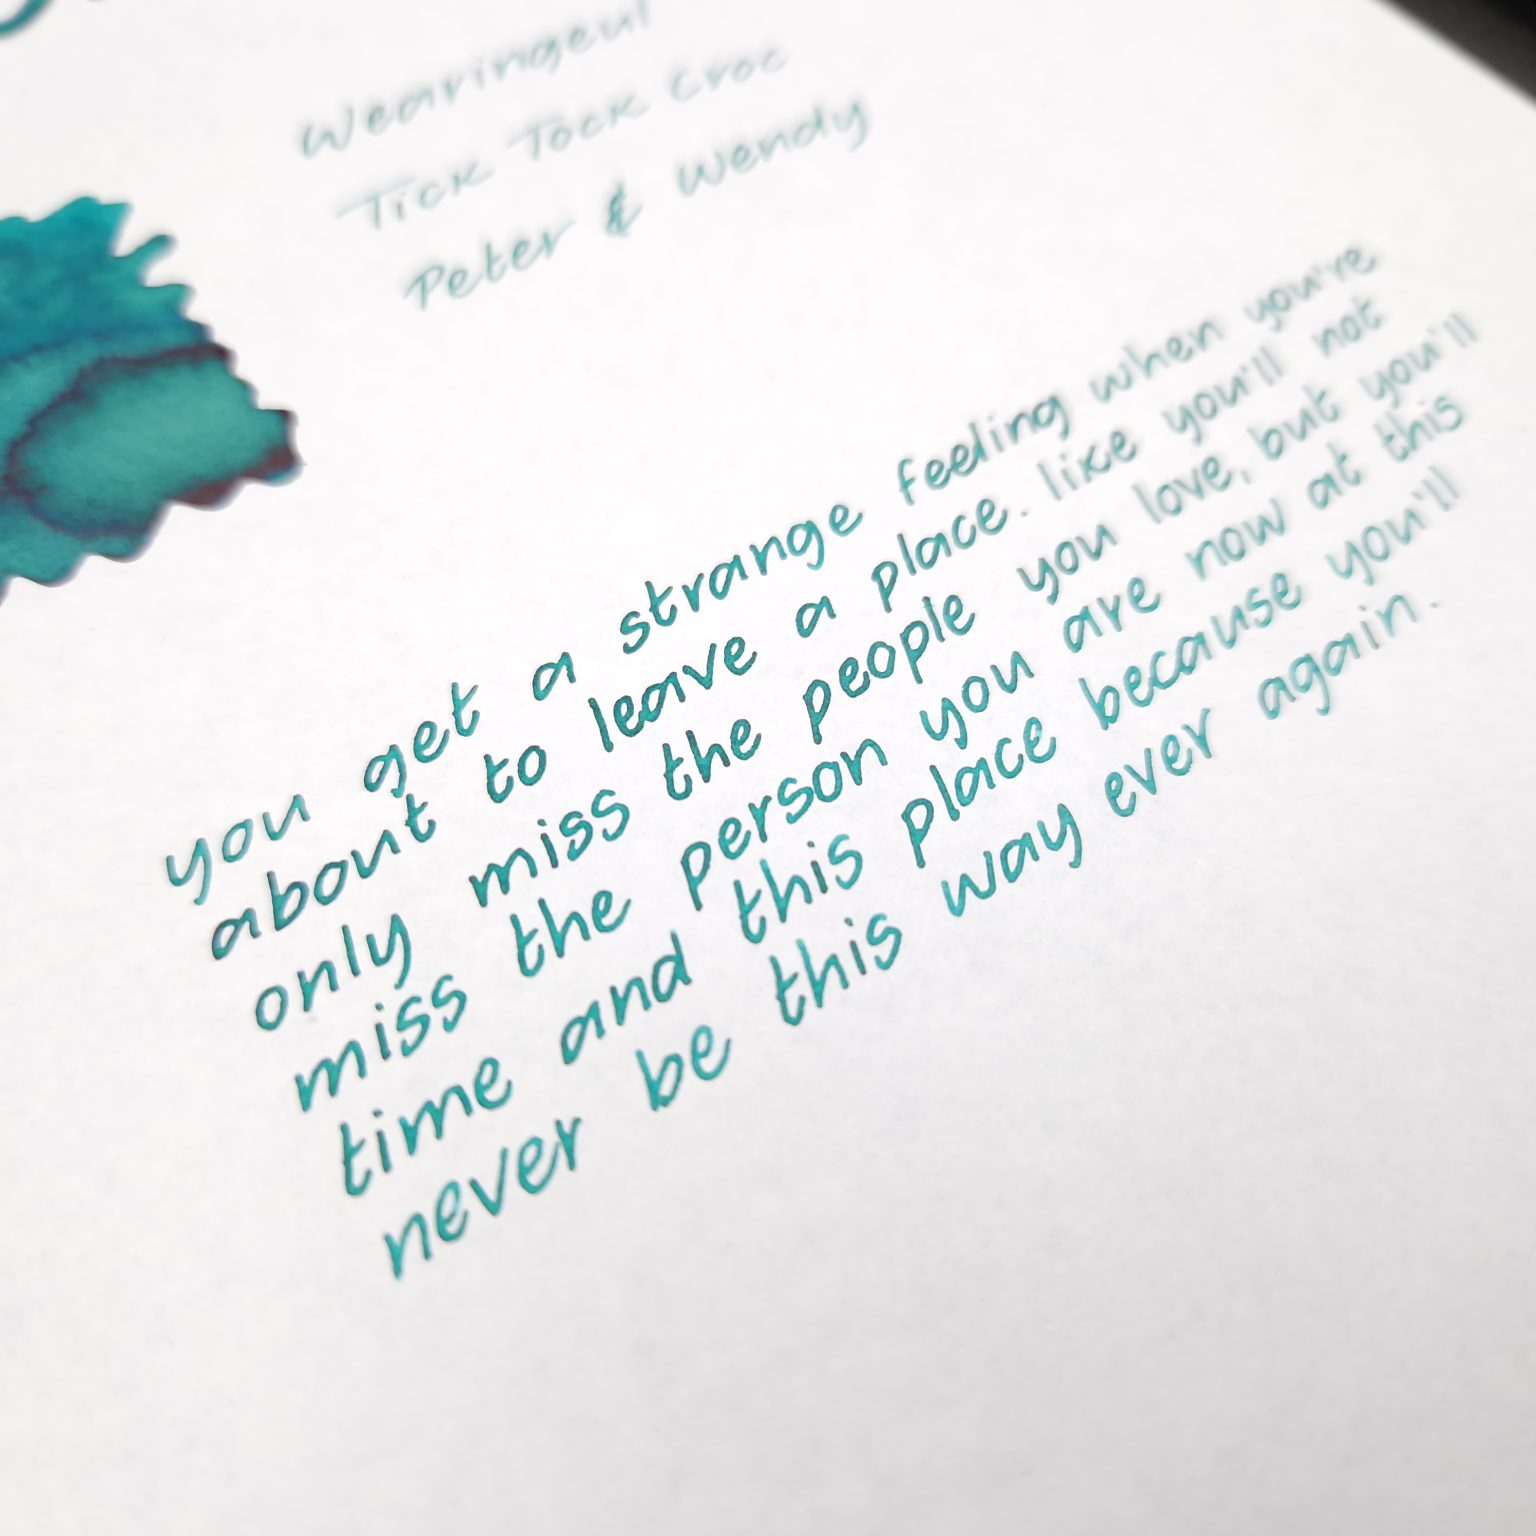 Wearingeul
Tick Tock Croc
Peter & Wendy
you get a strange feeling when you're
about to leave a place. like you'll not
only miss the people you love, but you'll
miss the person you are now at this
time and this place because you'll
never be this way ever again.